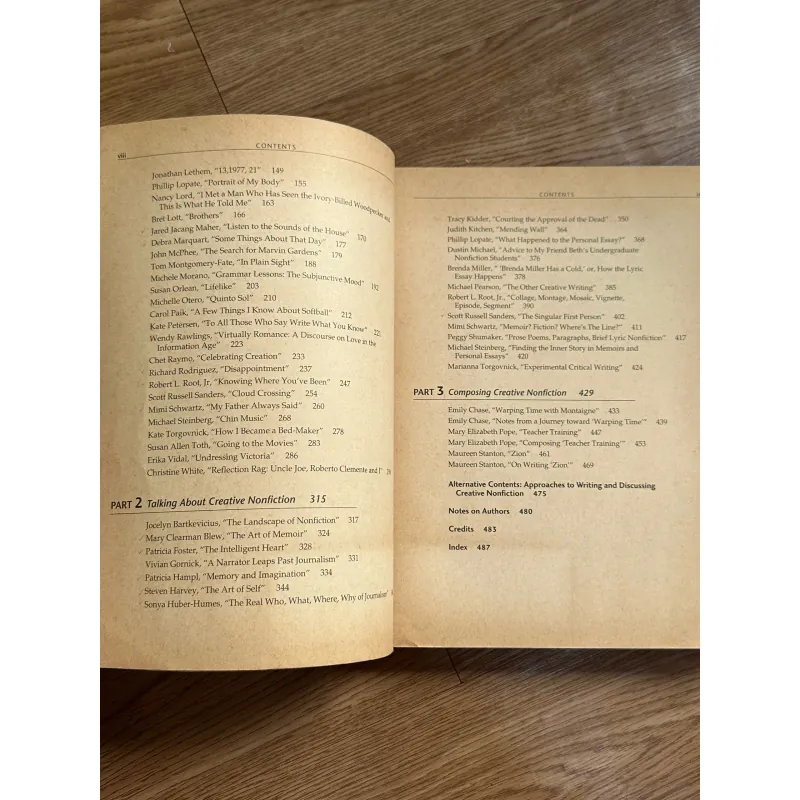 viii
CONTENTS
Jonathan Lethem, "13,1977, 21" 149
Phillip Lopate, "Portrait of My Body" 155
Nancy Lord, "I Met a Man Who Has Seen the Ivory-Billed Woodpecker, and
This Is What He Told Me" 163
Bret Lott, "Brothers" 166
Jared Jacang Maher, "Listen to the Sounds of the House" 170
Debra Marquart, "Some Things About That Day" 177
John McPhee, "The Search for Marvin Gardens" 179
Tom Montgomery-Fate, "In Plain Sight" 188
Michele Morano, "Grammar Lessons: The Subjunctive Mood" 192
Susan Orlean, "Lifelike" 203
Michelle Otero, "Quinto Sol" 210
Carol Paik, "A Few Things I Know About Softball" 212
Kate Petersen, "To All Those Who Say Write What You Know" 221
Wendy Rawlings, "Virtually Romance: A Discourse on Love in the
Information Age" 223
Chet Raymo, "Celebrating Creation" 233
Richard Rodriguez, "Disappointment" 237
Robert L. Root, Jr, "Knowing Where You've Been" 247
Scott Russell Sanders, "Cloud Crossing" 254
Mimi Schwartz, "My Father Always Said" 260
Michael Steinberg, "Chin Music" 268
Kate Torgovnick, "How I Became a Bed-Maker" 278
Susan Allen Toth, "Going to the Movies" 283
Erika Vidal, "Undressing Victoria" 286
Christine White, "Reflection Rag: Uncle Joe, Roberto Clemente and I"
PART 2 Talking About Creative Nonfiction 315
Jocelyn Bartkevicius, "The Landscape of Nonfiction" 317
Mary Clearman Blew, "The Art of Memoir" 324
Patricia Foster, "The Intelligent Heart" 328
Vivian Gornick, "A Narrator Leaps Past Journalism" 331
Patricia Hampl, "Memory and Imagination" 334
Steven Harvey, "The Art of Self" 344
Sonya Huber-Humes, "The Real Who, What, Where, Why of Journalism"
CONTENTS
Tracy Kidder, "Courting the Approval of the Dead" 350
Judith Kitchen, "Mending Wall" 364
Phillip Lopate, "What Happened to the Personal Essay?" 368
Dustin Michael, "Advice to My Friend Beth's Undergraduate
Nonfiction Students" 376
Brenda Miller, "'Brenda Miller Has a Cold,' or, How the Lyric
Essay Happens" 378
Michael Pearson, "The Other Creative Writing" 385
Robert L. Root, Jr., "Collage, Montage, Mosaic, Vignette,
Episode, Segment" 390
Scott Russell Sanders, "The Singular First Person" 402
Mimi Schwartz, "Memoir? Fiction? Where's The Line?" 411
Peggy Shumaker, "Prose Poems, Paragraphs, Brief Lyric Nonfiction" 417
Michael Steinberg, "Finding the Inner Story in Memoirs and
Personal Essays" 420
Marianna Torgovnick, "Experimental Critical Writing" 424
PART 3 Composing Creative Nonfiction 429
Emily Chase, "Warping Time with Montaigne" 433
Emily Chase, "Notes from a Journey toward 'Warping Time'" 439
Mary Elizabeth Pope, "Teacher Training" 447
Mary Elizabeth Pope, "Composing 'Teacher Training'" 453
Maureen Stanton, "Zion" 461
Maureen Stanton, "On Writing 'Zion'" 469
Alternative Contents: Approaches to Writing and Discussing
Creative Nonfiction 475
Notes on Authors 480
Credits 483
Index 487